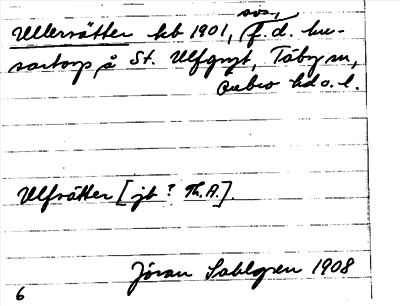 sos,
Ullersätter hb 1901, f. d. hu-
sartorp å St. Ulfgryt, Täby sn,
Örebro hd o. l.
Ulfsätter [jb? Th.A.].
Jöran Sahlgren 1908
6